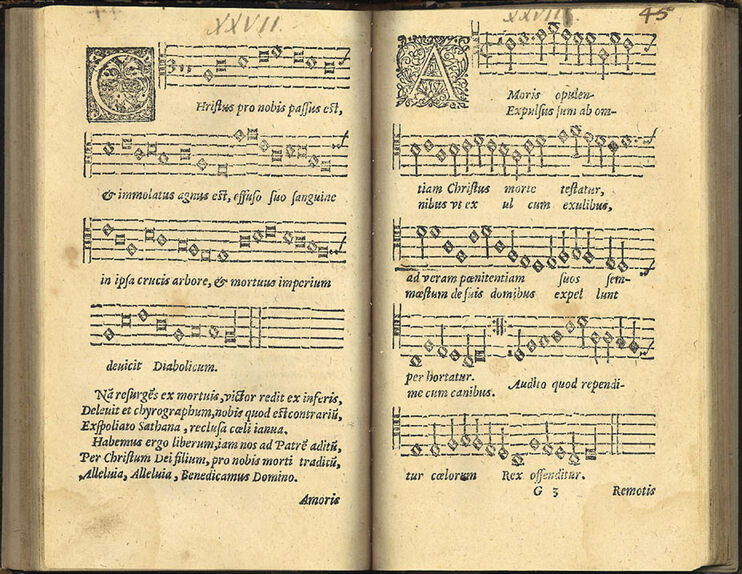 XXVII
CHristus pro nobis passus est,
& immolatus agnus est, effuso suo sanguine
in ipsa crucis arbore, & mortuus imperium
deuicit Diabolicum.
Nã resurgẽs ex mortuis, victor redit ex inferis,
Deleuit et chyrographum, nobis quod est contrariũ,
Exspoliato Sathana, reclusa cœli ianua.
Habemus ergo liberum, iam nos ad Patrẽ aditũ,
Per Christum Dei filium, pro nobis morti traditũ,
Alleluia, Alleluia, Benedicamus Domino.
Amoris
XXVII
45
AMoris opulen-
Expulsus sum ab om-
tiam Christus morte testatur,
nibus vt ex ul cum exulibus,
ad veram pœnitentiam suos sem-
mæstum de suis domibus expel lunt
per hortatur.
me cum canibus. Audito quod rependi-
tur cœlorum Rex offenditur.
G 3 Remotis